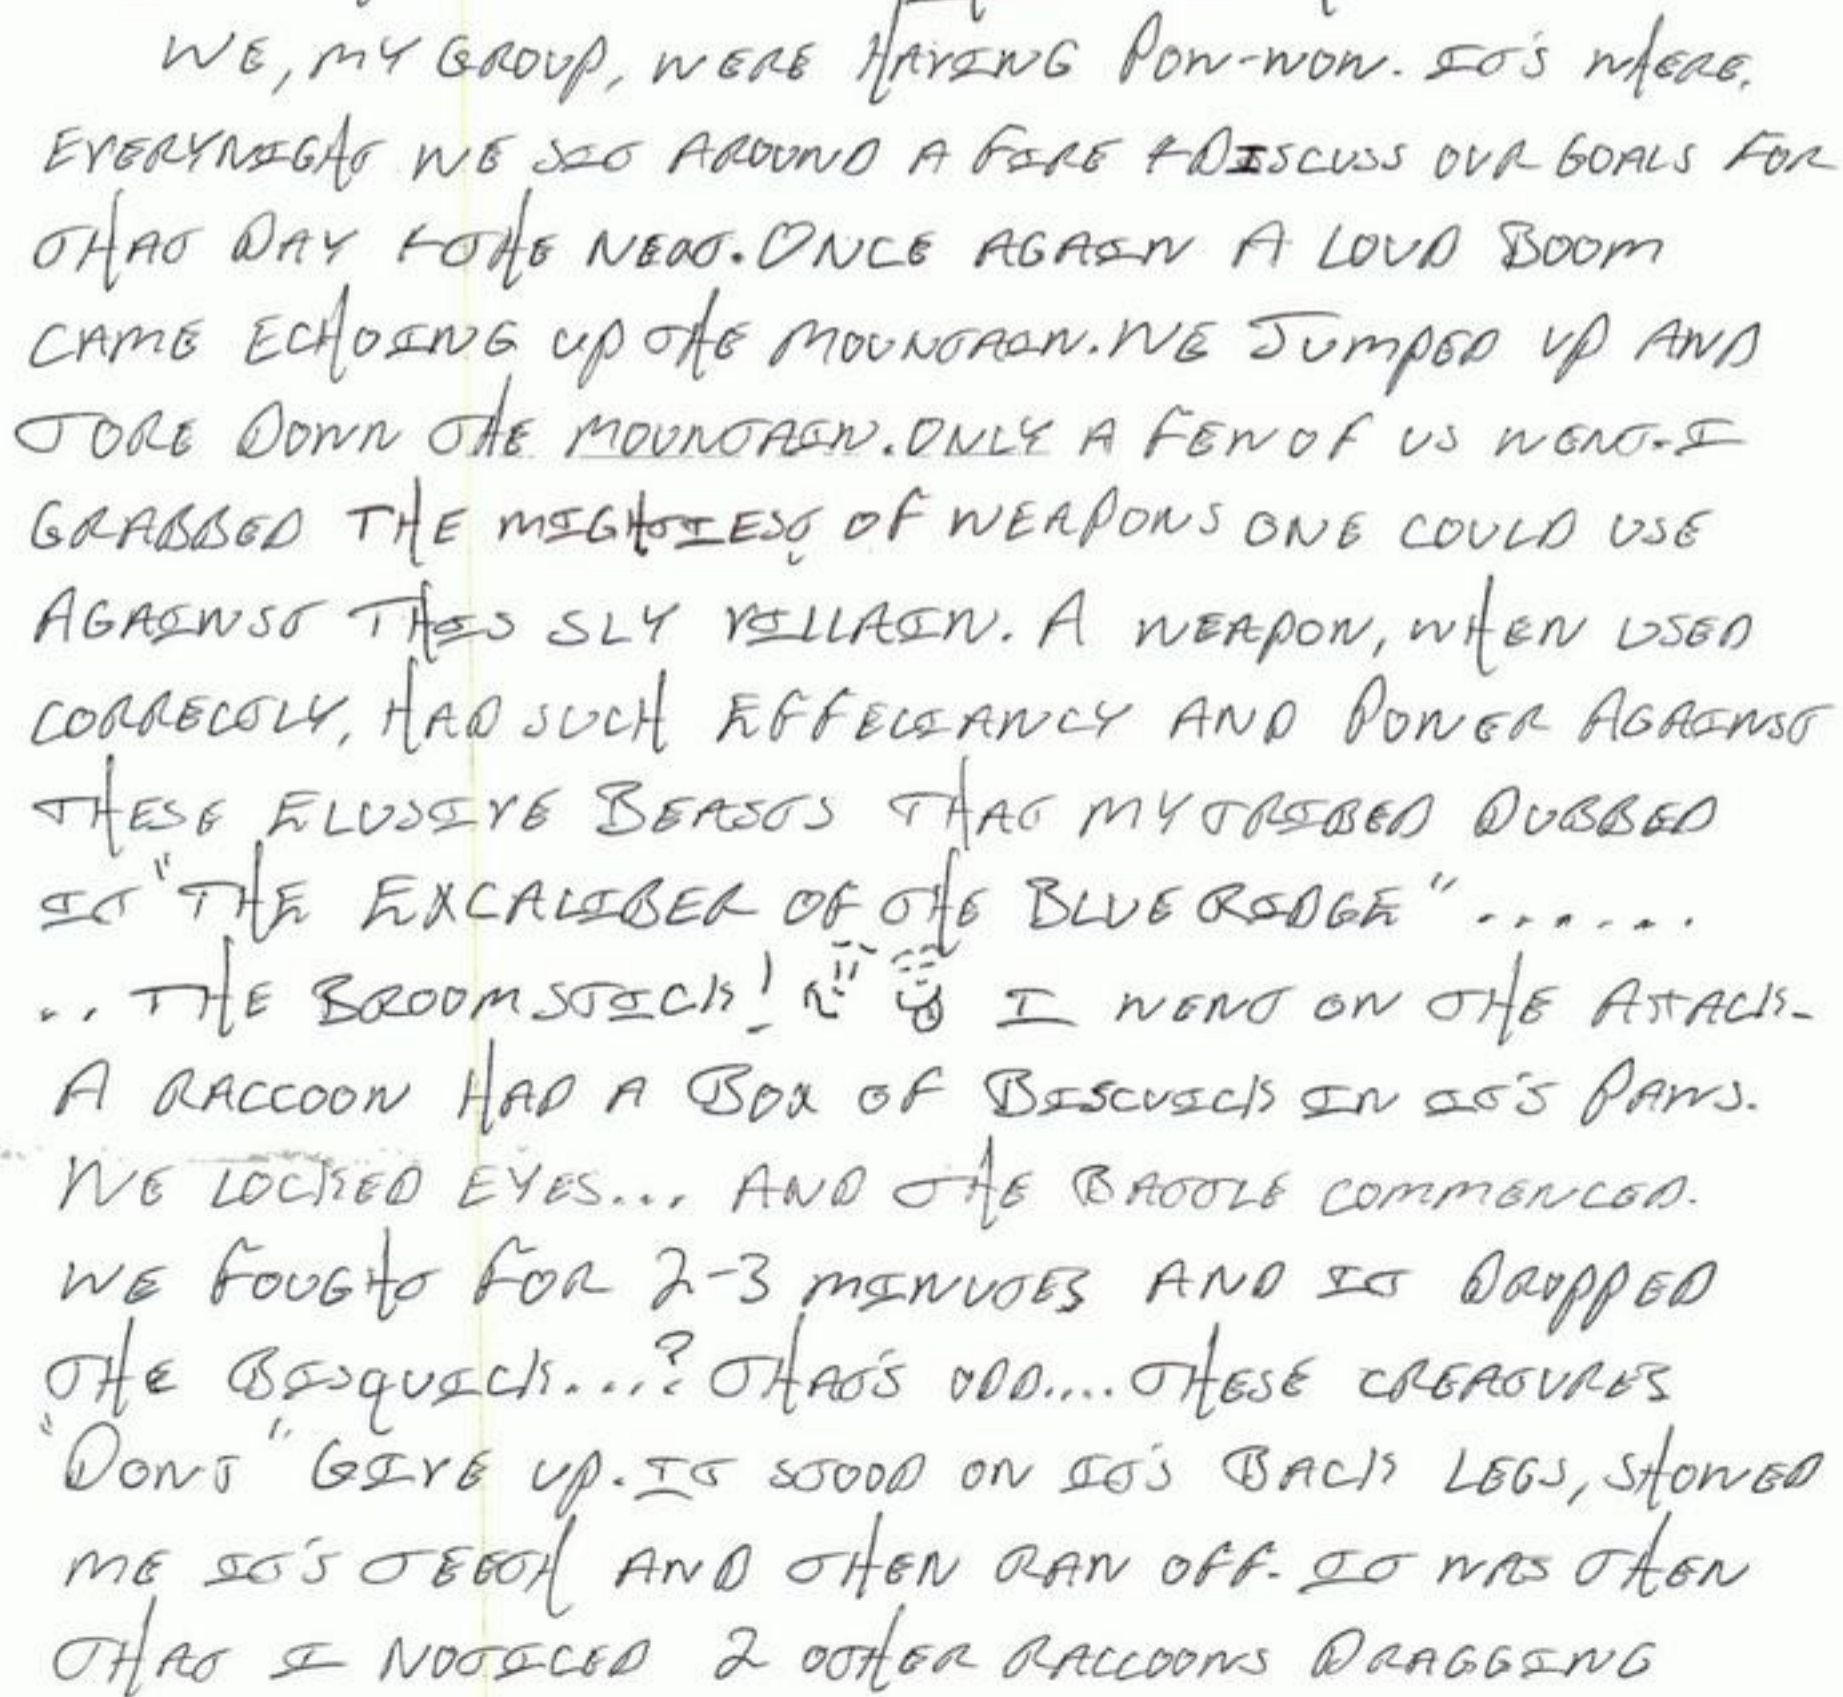 WE, MY GROUP, WERE HAVING POW-WOW. IT'S WHERE,
EVERYNIGHT WE SIT AROUND A FIRE & DISCUSS OUR GOALS FOR
THAT DAY & THE NEXT. ONCE AGAIN A LOUD BOOM
CAME ECHOING UP THE MOUNTAIN. WE JUMPED UP AND
TORE DOWN THE MOUNTAIN. ONLY A FEW OF US WENT. I
GRABBED THE MIGHTIEST OF WEAPONS ONE COULD USE
AGAINST THIS SLY VILLAIN. A WEAPON, WHEN USED
CORRECTLY, HAD SUCH EFFECIANCY AND POWER AGAINST
THESE ELUSIVE BEASTS THAT MY TRIBED DUBBED
IT "THE EXCALIBER OF THE BLUE RIDGE"......
.. THE BROOMSTICK! I WENT ON THE ATTACK-
A RACCOON HAD A BOX OF BISCUICK IN IT'S PAWS.
WE LOCKED EYES... AND THE BATTLE COMMENCED.
WE FOUGHT FOR 2-3 MINUTES AND IT DROPPED
THE BISQUICK....? THAT'S ODD.... THESE CREATURES
"DONT" GIVE UP. IT STOOD ON IT'S BACK LEGS, SHOWED
ME IT'S TEETH AND THEN RAN OFF. IT WAS THEN
THAT I NOTICED 2 OTHER RACCOONS DRAGGING